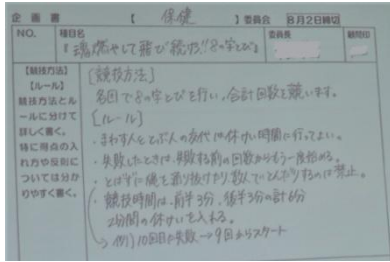 企画書 【 保健 】委員会 8月2日締切
NO. 種目名 委員長 顧問印
『魂燃やして跳び続けろ!!8の字とび』
【競技方法】
【ルール】
競技方法とル
ールに分けて
詳しく書く。
特に得点の入
れ方や反則に
ついては分か
りやすく書く。
[競技方法]
各団で8の字とびを行い、合計回数を競います。
[ルール]
・まわす人ととぶ人の交代は休けい時間に行ってよい。
・失敗したときは、失敗する前の回数からもう一度始める。
・とばずに縄を通り抜けたり、数人でとんだりするのは禁止。
・競技時間は、前半3分、後半3分の計6分
2分間の休けいを入れる。
→例)10回目に失敗→9回からスタート